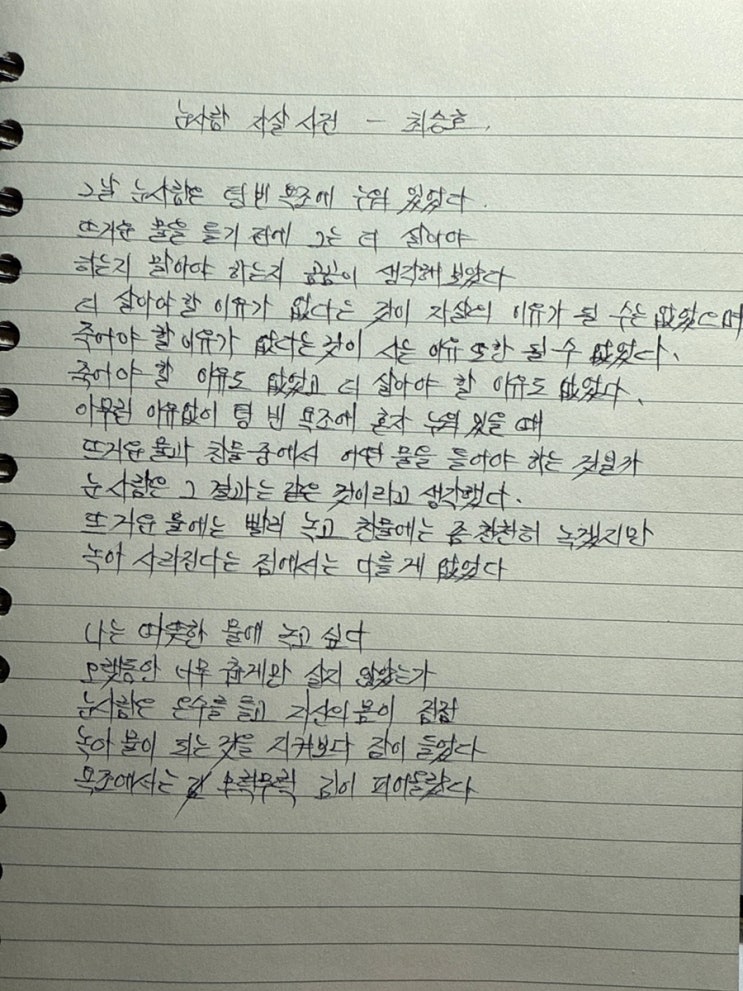 눈사람 자살 사건 - 최승호.
그날 눈사람은 텅 빈 욕조에 누워 있었다.
뜨거운 물을 틀기 전에 그는 더 살아야
하는지 말아야 하는지 곰곰이 생각해 보았다
더 살아야 할 이유가 없다는 것이 자살의 이유가 될 수는 없었으며
죽어야 할 이유가 없다는 것이 사는 이유 또한 될 수 없었다.
죽어야 할 이유도 없었고 더 살아야 할 이유도 없었다.
아무런 이유없이 텅 빈 욕조에 혼자 누워 있을 때
뜨거운 물과 찬물 중에서 어떤 물을 틀어야 하는 것일까
눈사람은 그 결과는 같은 것이라고 생각했다.
뜨거운 물에는 빨리 녹고 찬물에는 좀 천천히 녹겠지만
녹아 사라진다는 점에서는 다를 게 없었다
나는 따뜻한 물에 녹고 싶다
오랫동안 너무 춥게만 살지 않았는가
눈사람은 온수를 틀고 자신의 몸이 점점
녹아 물이 되는 것을 지켜보다 잠이 들었다
욕조에서는 무럭무럭 김이 피어올랐다